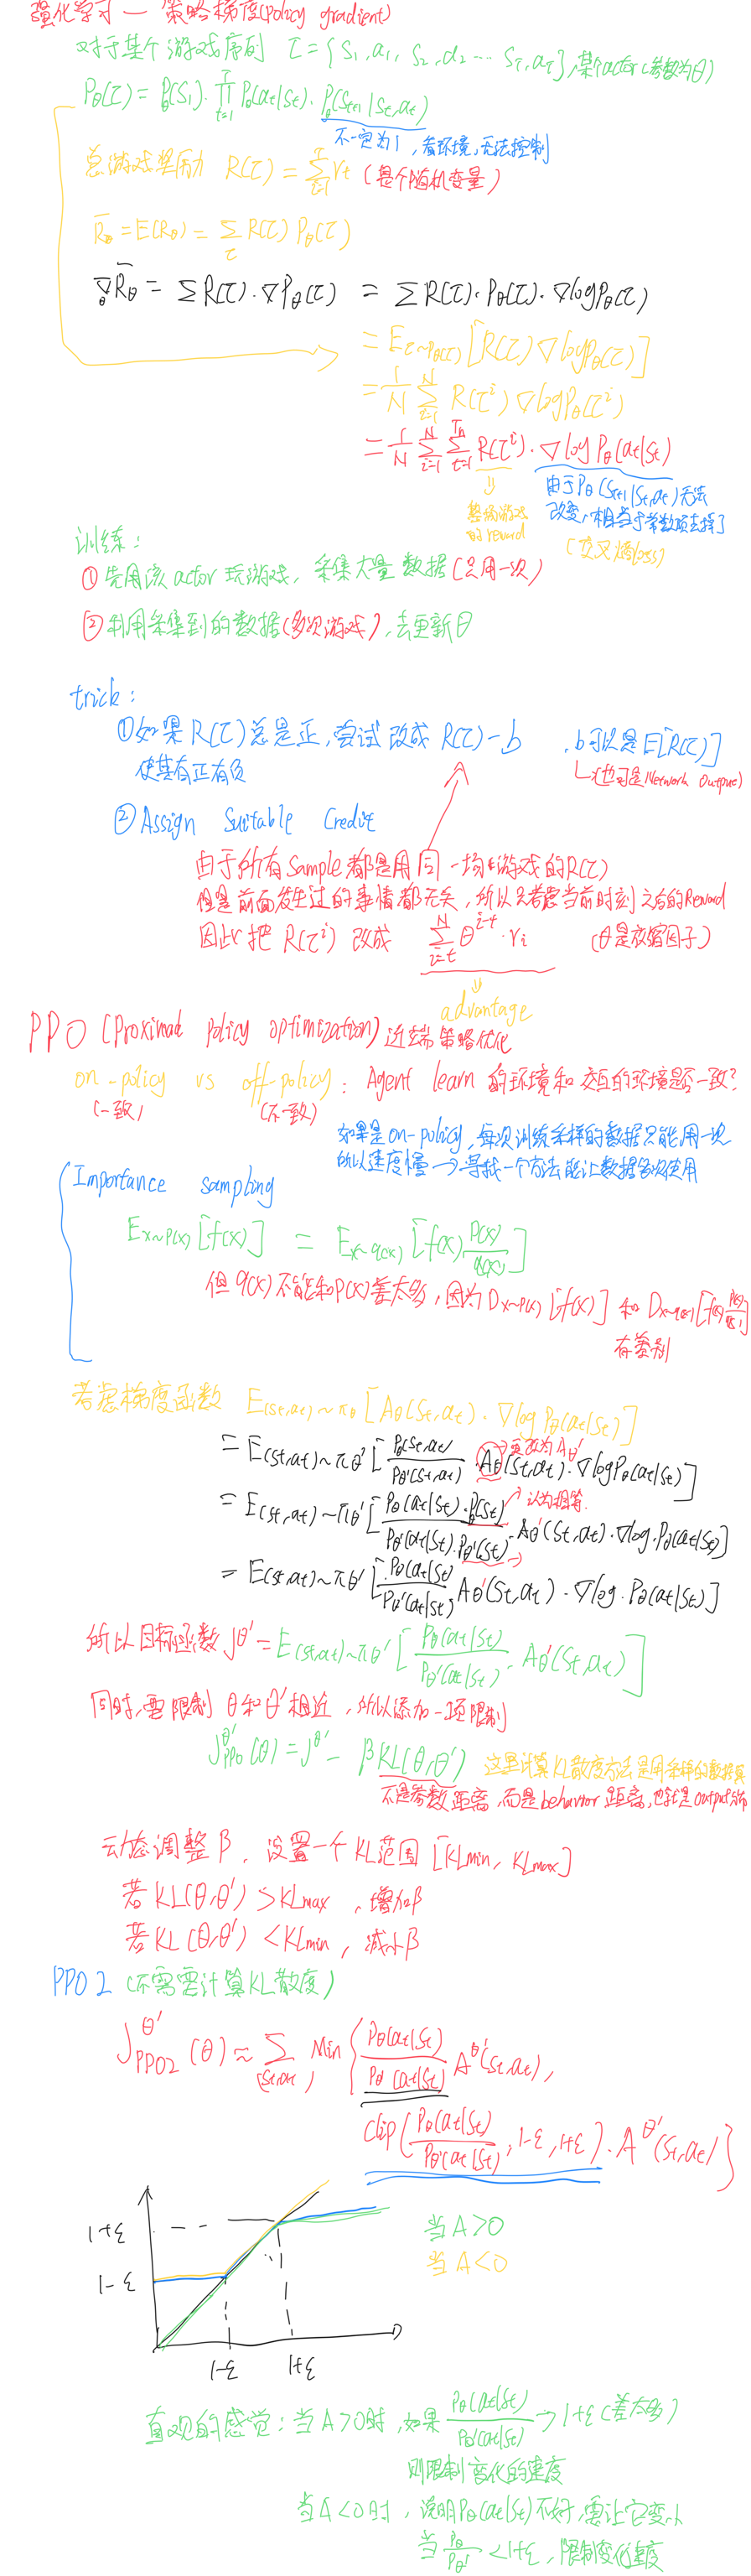 强化学习 — 策略梯度(policy gradient)
对于某个游戏序列 τ = {s₁, a₁, s₂, a₂ ... s_T, a_T}, 某个actor(参数为θ)
P_θ(τ) = P_θ(s₁)·∏_{t=1}^{T} P_θ(a_t|s_t)·P_θ(s_{t+1}|s_t,a_t)
不一定为1, 看环境, 无法控制
总游戏奖励 R(τ) = Σ_{t=1}^{T} r_t (是个随机变量)
R̄_θ = E(R_θ) = Σ_τ R(τ) P_θ(τ)
∇_θ R̄_θ = ΣR(τ)·∇P_θ(τ) = ΣR(τ)·P_θ(τ)·∇logP_θ(τ)
= E_{τ~P_θ(τ)} [R(τ)∇logP_θ(τ)]
= 1/N Σ_{i=1}^{N} R(τ^i)∇logP_θ(τ^i)
= 1/N Σ_{i=1}^{N} Σ_{t=1}^{T_n} R(τ^i)·∇log P_θ(a_t|s_t)
整场游戏的reward
由于P_θ(s_{t+1}|s_t,a_t)无法
改变, 相当于常数项去掉了
(交叉熵loss)
训练:
① 先用该actor玩游戏, 采集大量数据(只用一次)
② 利用采集到的数据(多次游戏), 去更新θ
trick:
①如果R(τ)总是正, 尝试改成 R(τ)-b , b可以是E[R(τ)]
使其有正有负
也可是Network Output)
② Assign Suitable Credit
由于所有sample都是用同一场游戏的R(τ)
但是前面发生过的事情都无关, 所以只考虑当前时刻之后的Reward
因此把 R(τ^i) 改成 Σ_{i=t}^{N} θ^{i-t}·r_i (θ是衰缩因子)
advantage
PPO (Proximal policy optimization) 近端策略优化
on-policy vs off-policy: Agent learn 的环境和交互的环境是否一致?
(一致) (不一致)
如果是on-policy, 每次训练采样的数据只能用一次
所以速度慢 → 寻找一个方法能让数据多次使用
Importance sampling
E_{x~p(x)}[f(x)] = E_{x~q(x)}[f(x) p(x)/q(x)]
但q(x)不能和p(x)差太多, 因为D_{x~p(x)}[f(x)] 和 D_{x~q(x)}[f(x) p(x)/q(x)]
有差别
考虑梯度函数 E_{(s_t,a_t)~π_θ}[A_θ(s_t,a_t)·∇log P_θ(a_t|s_t)]
→更改为A_θ'
= E_{(s_t,a_t)~π_θ'}[P_θ(s_t,a_t)/P_θ'(s_t,a_t) A_θ(s_t,a_t)·∇logP_θ(a_t|s_t)]
认为相等.
= E_{(s_t,a_t)~π_θ'}[P_θ(a_t|s_t)·P_θ(s_t)/P_θ'(a_t|s_t)·P_θ'(s_t)·A_θ'(s_t,a_t)·∇log·P_θ(a_t|s_t)]
= E_{(s_t,a_t)~π_θ'}[P_θ(a_t|s_t)/P_θ'(a_t|s_t) A_θ'(s_t,a_t)·∇log·P_θ(a_t|s_t)]
所以目标函数 J^θ' = E_{(s_t,a_t)~π_θ'}[P_θ(a_t|s_t)/P_θ'(a_t|s_t)·A_θ'(s_t,a_t)]
同时, 需限制 θ和θ'相近, 所以添加一项限制
J_PPO^θ'(θ) = J^θ' - βKL(θ,θ') 这里计算KL散度方法是用采样的数据算
不是参数距离, 而是behavior距离, 也就是output分布
动态调整β, 设置一个KL范围 [KLmin, KLmax]
若KL(θ,θ') > KLmax, 增加β
若KL(θ,θ') < KLmin, 减小β
PPO2 (不需要计算KL散度)
J_PPO2^θ'(θ) ≈ Σ_{(s_t,a_t)} Min{P_θ(a_t|s_t)/P_θ(a_t|s_t) A^θ'(s_t,a_t),
clip(P_θ(a_t|s_t)/P_θ'(a_t|s_t), 1-ε, 1+ε)·A^θ'(s_t,a_t)}
1+ε
当A>0
1-ε
当A<0
1-ε 1+ε
直观的感觉: 当A>0时, 如果 P_θ(a_t|s_t)/P_θ'(a_t|s_t) → 1+ε (差太多)
则限制变化的速度
当A<0时, 说明P_θ(a_t|s_t)不好, 需让它变小
当 P_θ/P_θ' < 1+ε, 限制变化速度